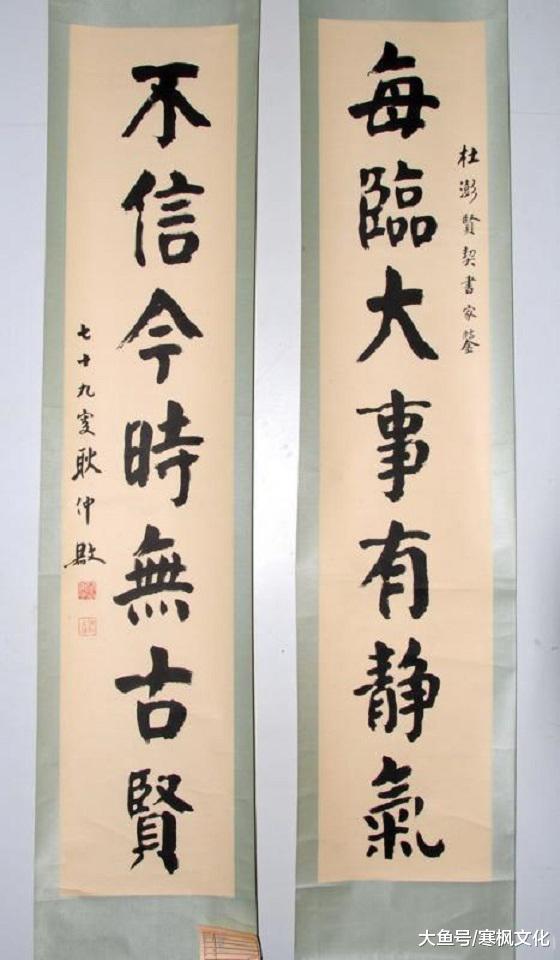 每臨大事有静氣
杜澎賢契書家鑒
不信今時無古賢
七十九叟耿仲敭
大鱼号/寒枫文化